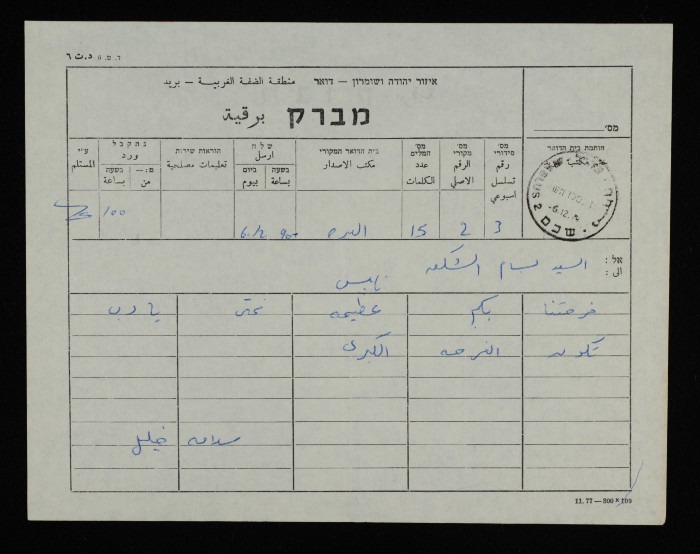 ד. ט. 6 د.ت ٦
איזור יהודה ושומרון – דואר منطقة الضفة الغربية – بريد
מברק برقية
מס'
חותמת בית הדואר
מס' סידורי رقم تسلسل اسبوعي
מס' מקורי الرقم الاصلي
מס' המלים عدد الكلمات
בית הדואר המקורי مكتب الاصدار
שלח ارسل
בשעה بساعة
ביום بيوم
הוראות שירות تعليمات مصلحية
נתקבל ورد
בשעה بساعة
מ:– من
ע"י المستلم
NABLUS 2 שכם
3 2 15 البيره 900 6/12 100
אל: الى: السيد بسام الشكعه
نابلس
فرحتنا بكم عظيمه نحنى يا رب
تكون الفرحه الكبرى
خليل
11.77 — 300×100